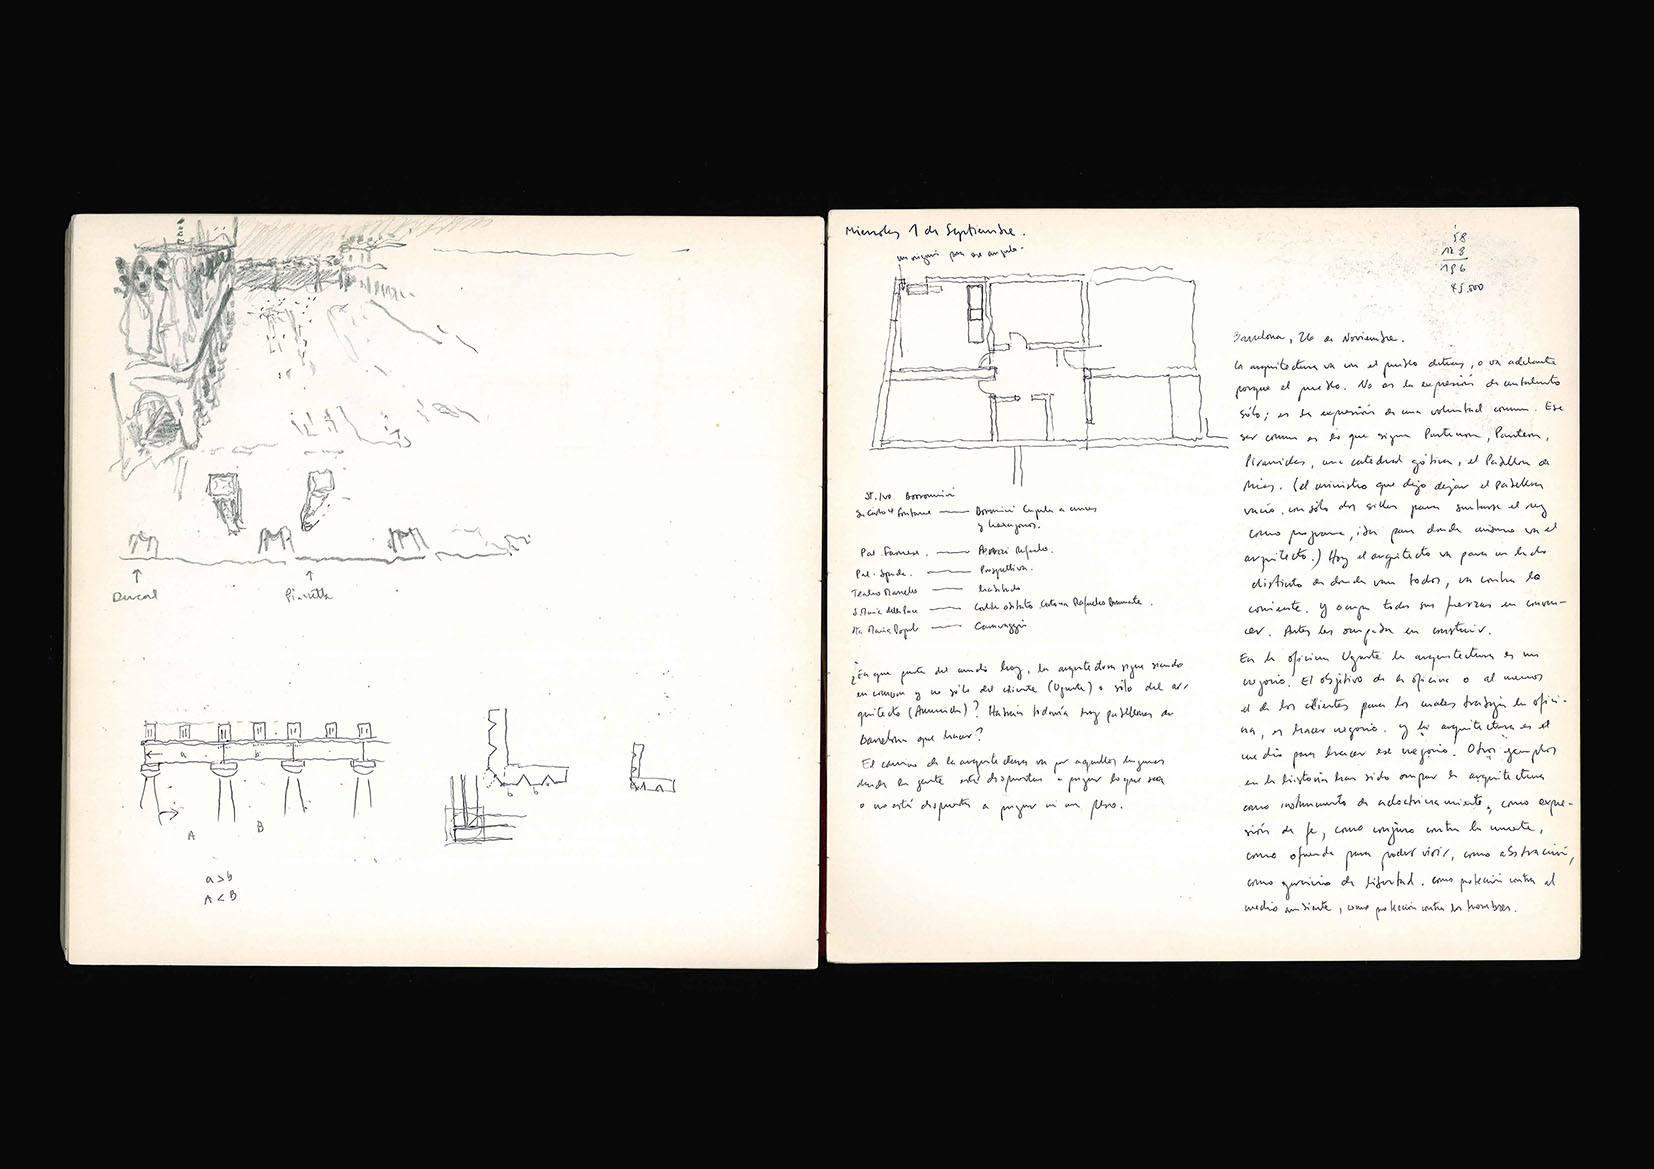 Ducal
Piazzetta
a
b
A
B
a > b
A < B
Miercoles 1 de Septiembre.
por ese angulo.
58
123
196
45.500
St. Ivo. Borromini
San Carlo 4 Fontane — Borromini Cupula a cruces
y hexagonos.
Pal. Farnese. —
Pal. Spada. — Prospettiva.
Teatro Marcello —
S. Maria della Pace — Rafaello Bramante.
Sta. Maria Popolo — Caravaggio
¿En que parte del mundo hoy, la arquitectura sigue siendo
en comun y no sólo del cliente (Ugarte) o sólo del ar
quitecto (Amunátegui)? Habrán todavía hoy pabellones de
Barcelona que hacer?
El camino de la arquitectura va por aquellos lugares
donde la gente está dispuesta a pagar lo que sea
o no está dispuesta a pagar ni un peso.
Barcelona, 26 de Noviembre.
La arquitectura va con el pueblo detras, o va adelante
porque el pueblo. No es la expresión de un talento
sólo; es la expresión de una voluntad comun. Ese
ser comun es lo que sigue Partenon, Panteon,
Piramides, una catedral gótica, el Pabellon de
Mies. (el ministro que dijo dejar el Pabellon
vacío, con sólo dos sillas para sentarse el rey
como programa, iba para donde mismo va el
arquitecto.) Hoy el arquitecto va para un lado
distinto de donde van todos, va contra la
corriente. Y ocupa todas sus fuerzas en conven-
cer. Antes las ocupaba en construir.
En la oficina Ugarte la arquitectura es un
negocio. El objetivo de la oficina o al menos
el de los clientes para los cuales trabaja la ofici-
na, es hacer negocio. Y la arquitectura es el
medio para hacer ese negocio. Otros ejemplos
en la historia han sido ocupar la arquitectura
como instrumento de adoctrinamiento, como expre-
sión de fe, como conjuro contra la muerte,
como ofrenda para poder vivir, como abstracción,
como ejercicio de libertad. como protección contra el
medio ambiente, como protección contra los hombres.